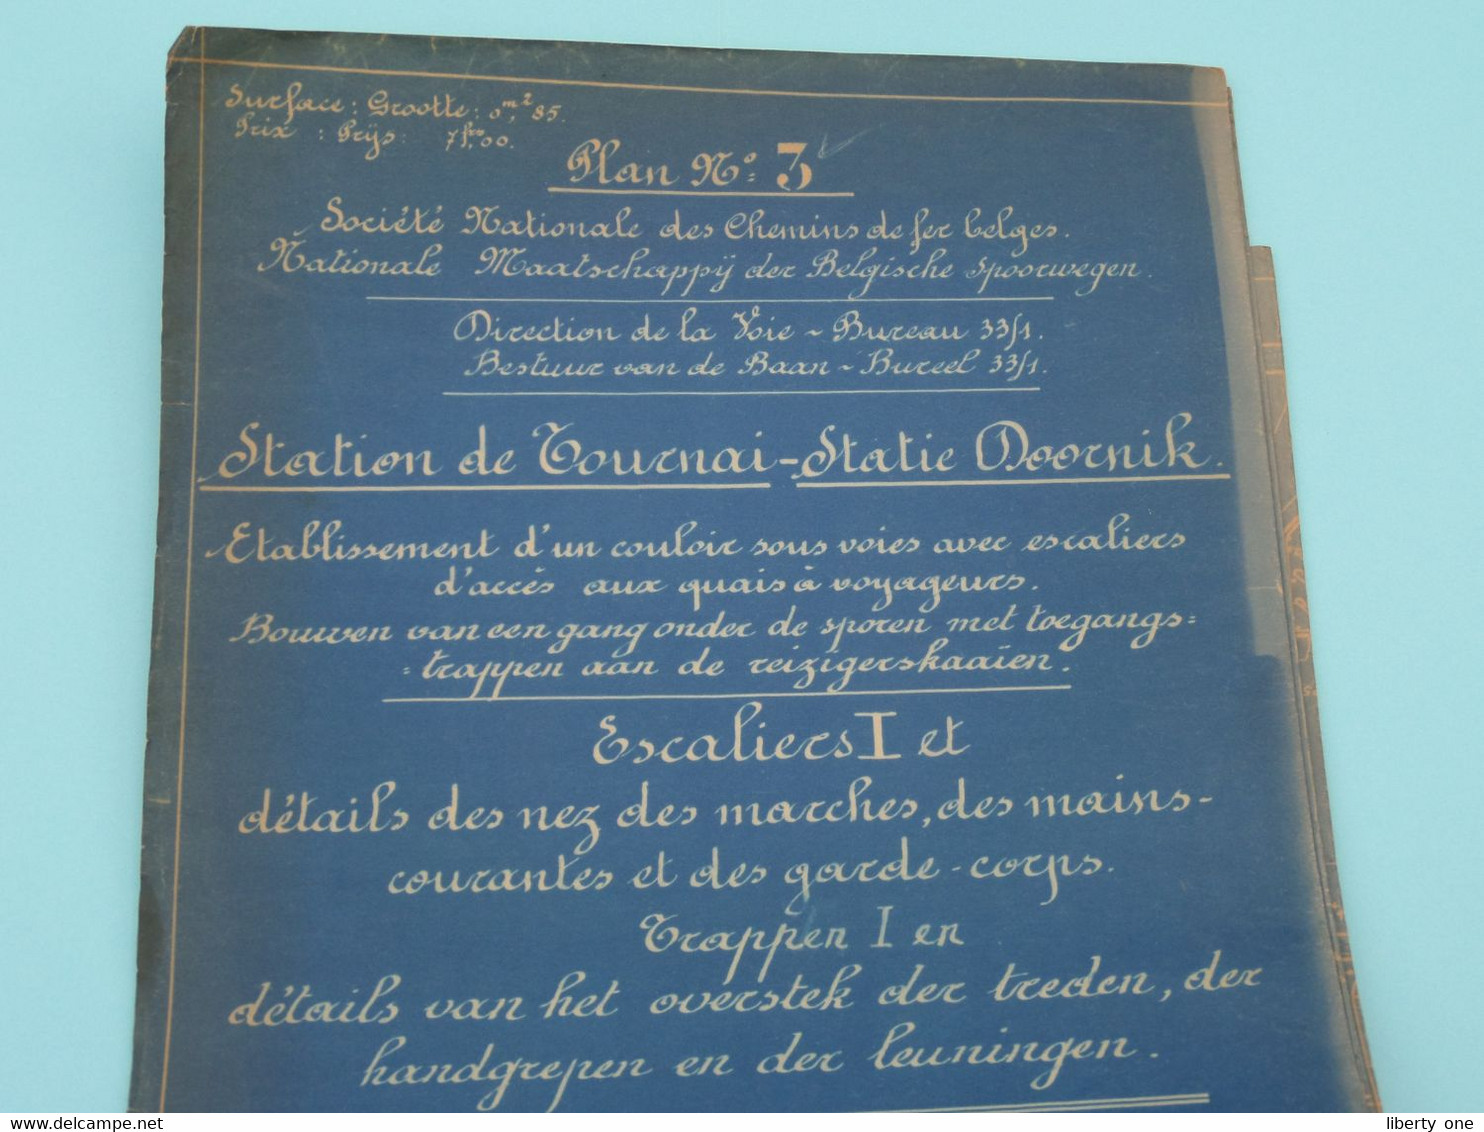 Surface : Grootte : 0,m² 85.
Prix : Prijs : 7 frs,00.
Plan No: 3
Société Nationale des Chemins de fer belges.
Nationale Maatschappij der Belgische spoorwegen.
Direction de la Voie ~ Bureau 33/1.
Bestuur van de Baan ~ Bureel 33/1.
Station de Tournai - Statie Doornik.
Etablissement d'un couloir sous voies avec escaliers
d'accès aux quais à voyageurs.
Bouwen van een gang onder de sporen met toegangs=
=trappen aan de reizigerskaaien.
Escaliers I et
détails des nez des marches, des mains-
courantes et des garde-corps.
Trappen I en
détails van het overstek der treden, der
handgrepen en der leuningen.
delcampe.net
liberty one